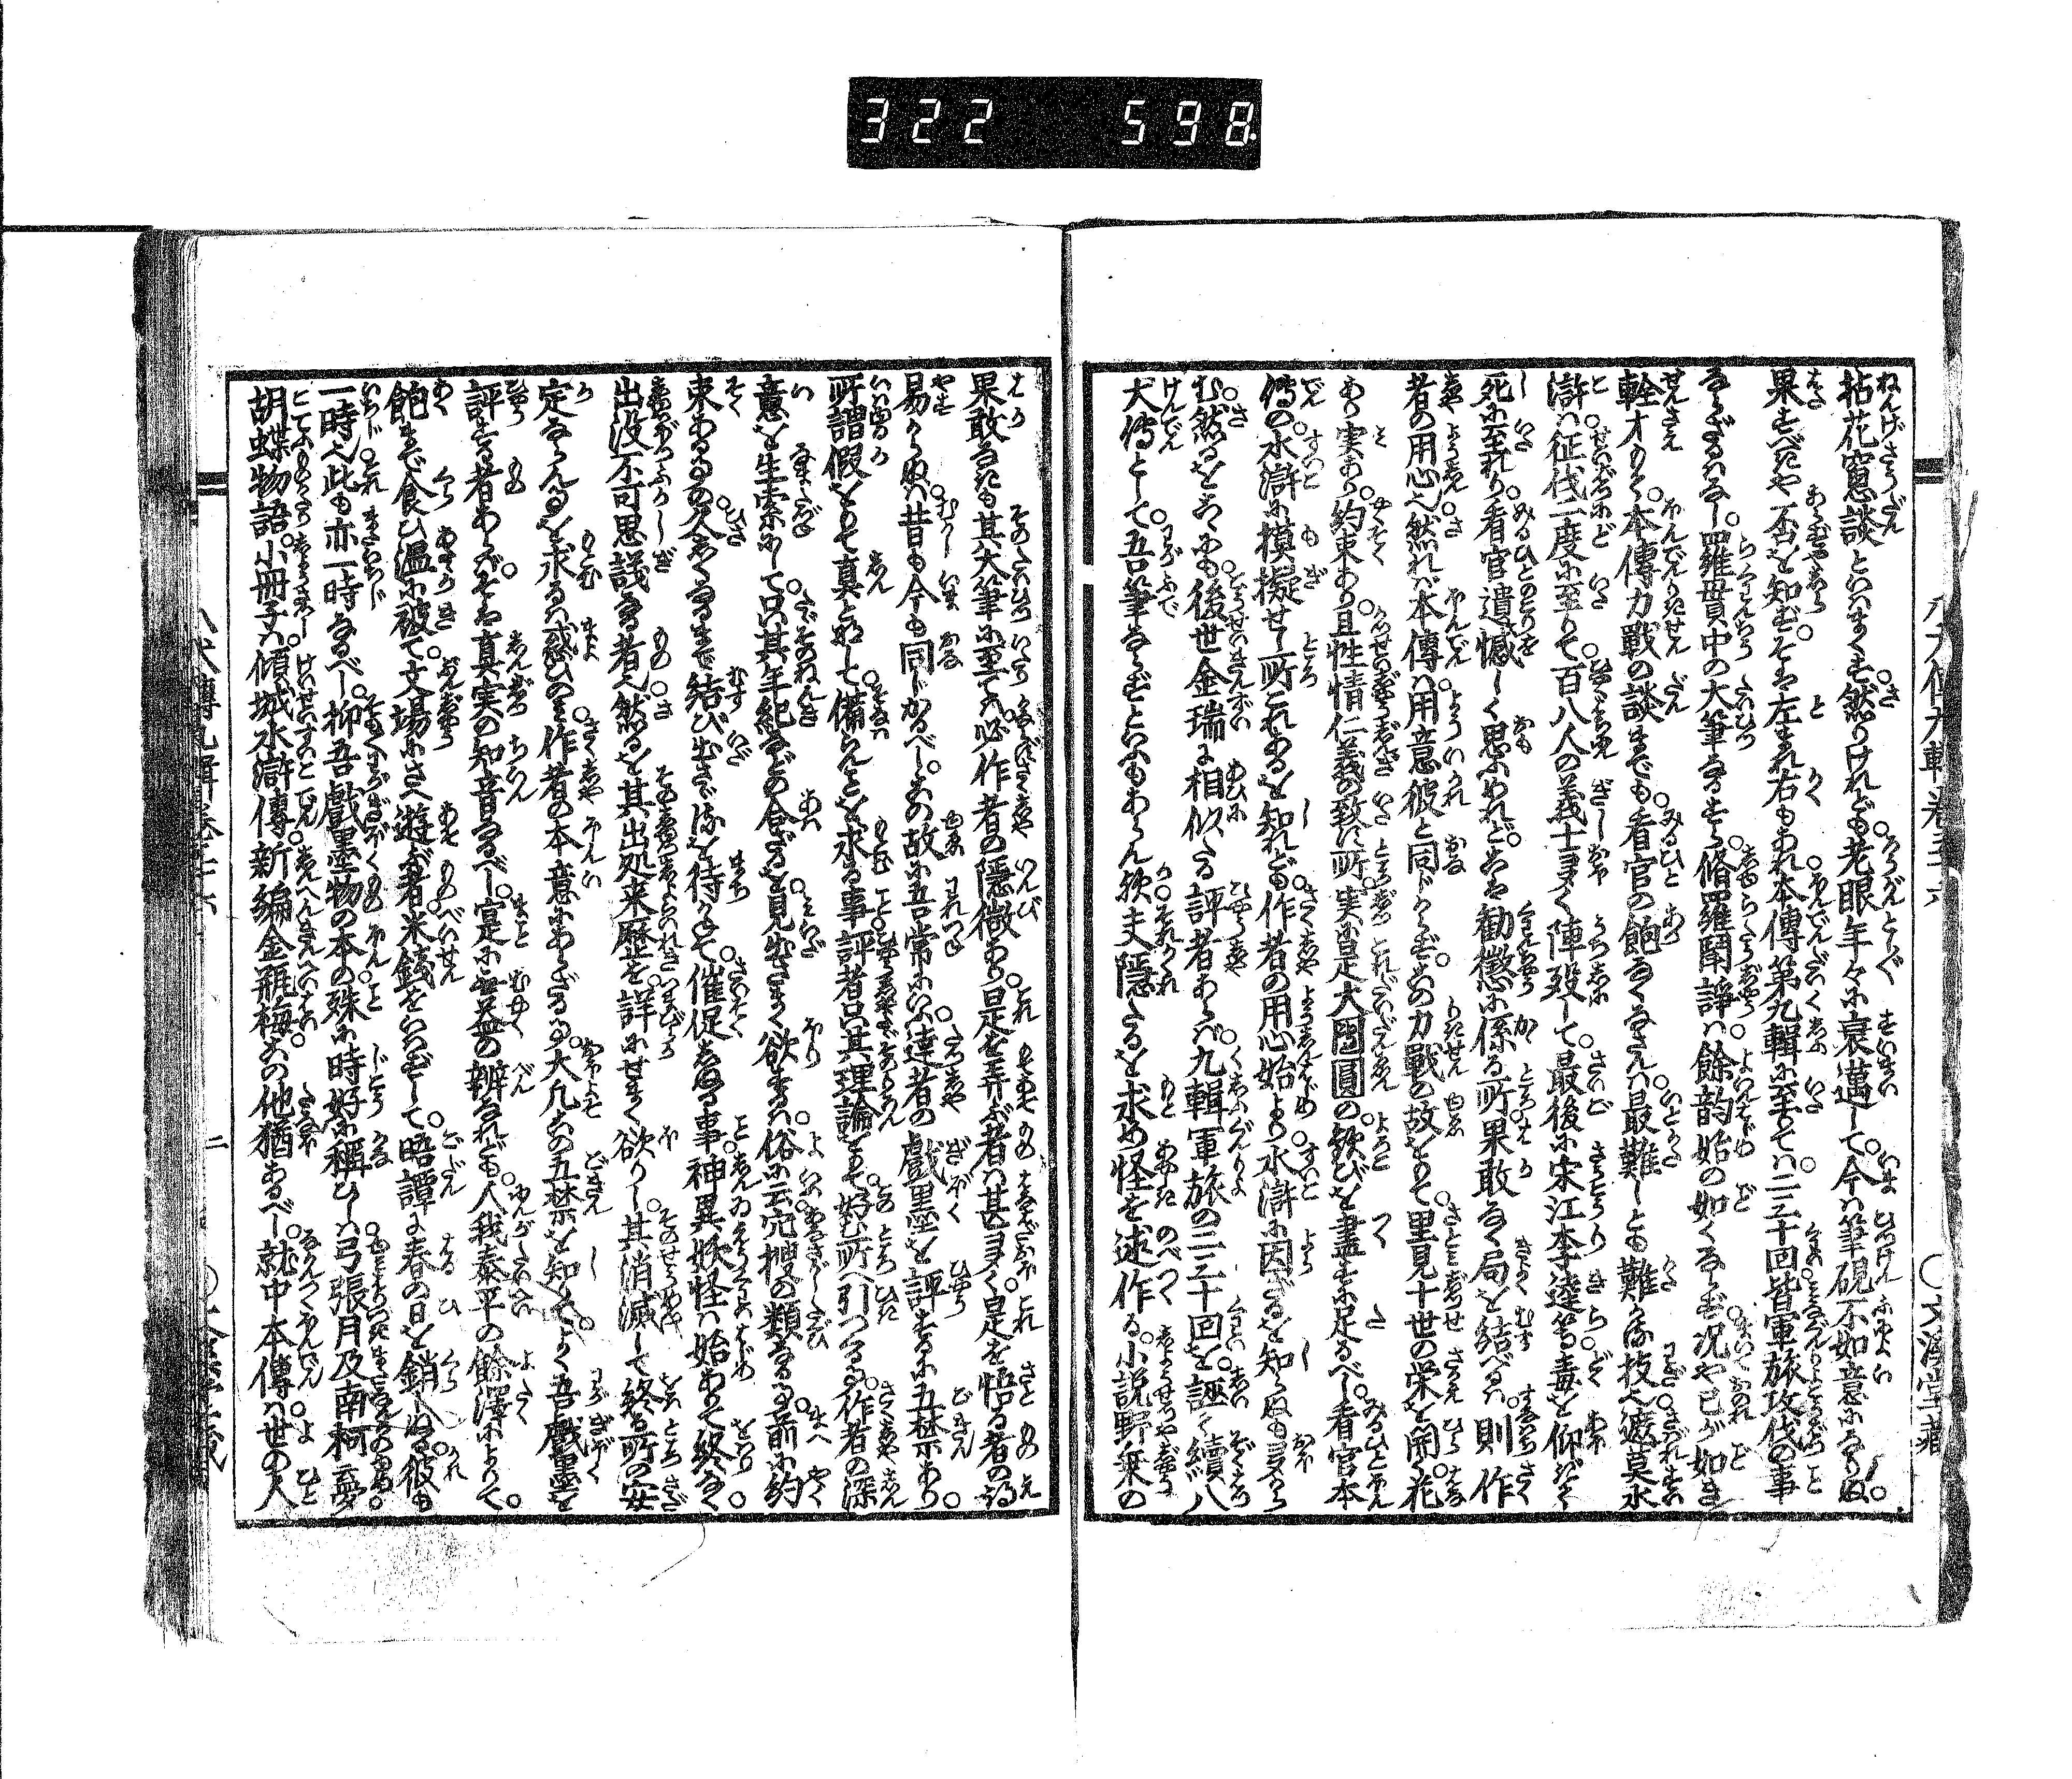 322 598
拈花窓談といはまくも然りけれども老眼年々に衰邁して今は筆硯不如意になりぬ。
果すべきや否を知ず。そは左まれ右もあれ本傳第九輯に至りては二三十回皆軍旅攻伐の事
ならざるはなし。羅貫中の大筆なるすら。脩羅鬪諍は。餘韵始の如くならず。况や己が如き
輇才もて。本傳力戰の談までも。看官の飽なくなさんは。最難しとも難かる技也。遮莫水
滸は征伐二度に至りて。百八人の義士多く陣歿して。最後に宋江李逵等毒を仰ぎて
死に至れり。看官遺憾しく思ふめれど。そは勧懲に係る所果敢なく局を結べるは。則作
者の用心也。然れば本傳は用意彼と同じからず。この力戰の故をもて。里見十世の栄を開く。花
あり実あり。約束あり。且性情仁義の致す所。実に是大團圓の歓びを盡すに足るべし。看官本
傳の水滸に摸擬せし所これあるを知れども。作者の用心始より水滸に因ざるを知らぬも多から
む。然るをこゝにも後世金瑞に相似たる評者あらば。九輯軍旅の二三十回を誣て續八
犬傳として。吾筆ならずといふもあらん歟。夫隱れたるを求め怪を述作る。小説野乗の
八犬傳九輯卷三十六
○文溪堂藏
果敢なきも其大筆に至ては必作者の隱微あり。是を弄ぶ者は甚多く。是を悟る者の得
易からぬは昔も今も同じかるべし。この故に吾常にいふ。達者の戲墨を評するに五禁あり。
所謂假をもて真となして。備らんことを求る事。評者只其理論をもて好む所へ引つくる。作者の深
意を生索にして。只其年紀などの合ざるを。見出さまく欲するは。俗に云穴搜の類なる。前に約
束あるもの。久しくなるまで結び出さゞるを待かねて。催促しぬる事。神異妖怪は始ありて終なく。
出没不可思議なる者也。然るを其出処来歴を。詳にせまく欲りし。其消滅して終る所の安
定ならんを求るは惑ひのみ。作者の本意にあらざる。大凡この五禁を知りて。よく吾戲墨を
評する者あらば。そは真実の知音なるべし。寔に無益の辨なれども。人我泰平の餘澤によりて。
飽まで食ひ温に被て。文場にさへ遊ぶ者。米錢をいはずして。晤譚に春の日を銷しぬる。彼も
一時也此も亦一時なるべし。抑吾戲墨物の本の殊に時好に稱ひしは弓張月及南柯夢
胡蝶物語。小冊子は。傾城水滸傳。新編金瓶梅。この他猶あるべし。就中本傳は世の人
八犬傳九輯卷三十六
二